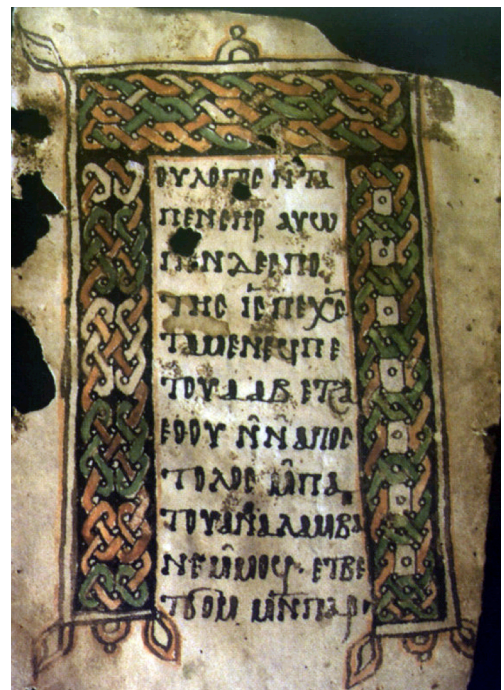 ⲟⲩⲗⲟⲅⲟⲥ ⲛ̄ⲧⲁ
ⲡⲉⲛⲥⲏⲣ ⲁⲩⲱ
ⲡⲉⲛⲇⲉⲥⲡⲟ
ⲧⲏⲥ ⲓ̅ⲥ̅ ⲡⲉⲭ̅ⲥ̅
ⲧⲁϣⲉⲛⲉϥⲡⲉ
ⲧⲟⲩⲁⲁⲃ ⲉⲧⲁ
ⲉⲟⲟⲩ ⲛ̄ⲛⲁⲡⲟⲥ
ⲧⲟⲗⲟⲥ ⲙ̄ⲡⲁ
ⲧⲟⲩⲁⲛⲁⲗⲁⲙⲃⲁ
ⲛⲉ ⲙ̄ⲙⲟϥ· ⲉⲧⲃⲉ
ⲧϭⲟⲙ ⲙⲛ̄ⲡⲁⲣ·